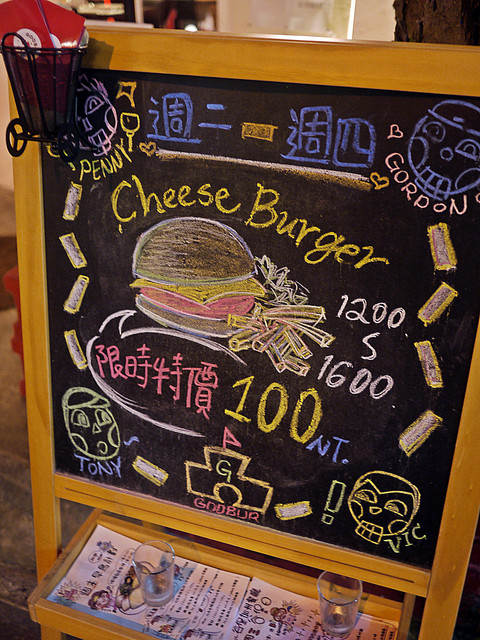 週二 - 週四
PENNY
GORDON
Cheese Burger
1200
S
1600
限時特價
100 NT.
TONY
G
GODBUR
!
VIC